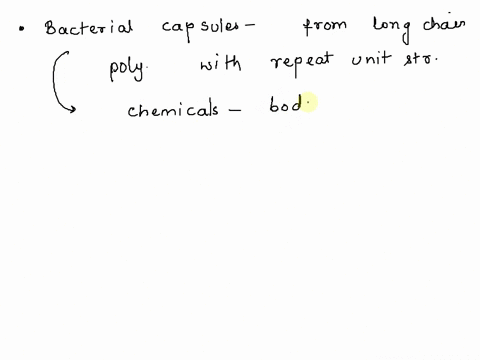 • Bacterial capsules - from long chain
poly. with repeat unit str.
chemicals - bod